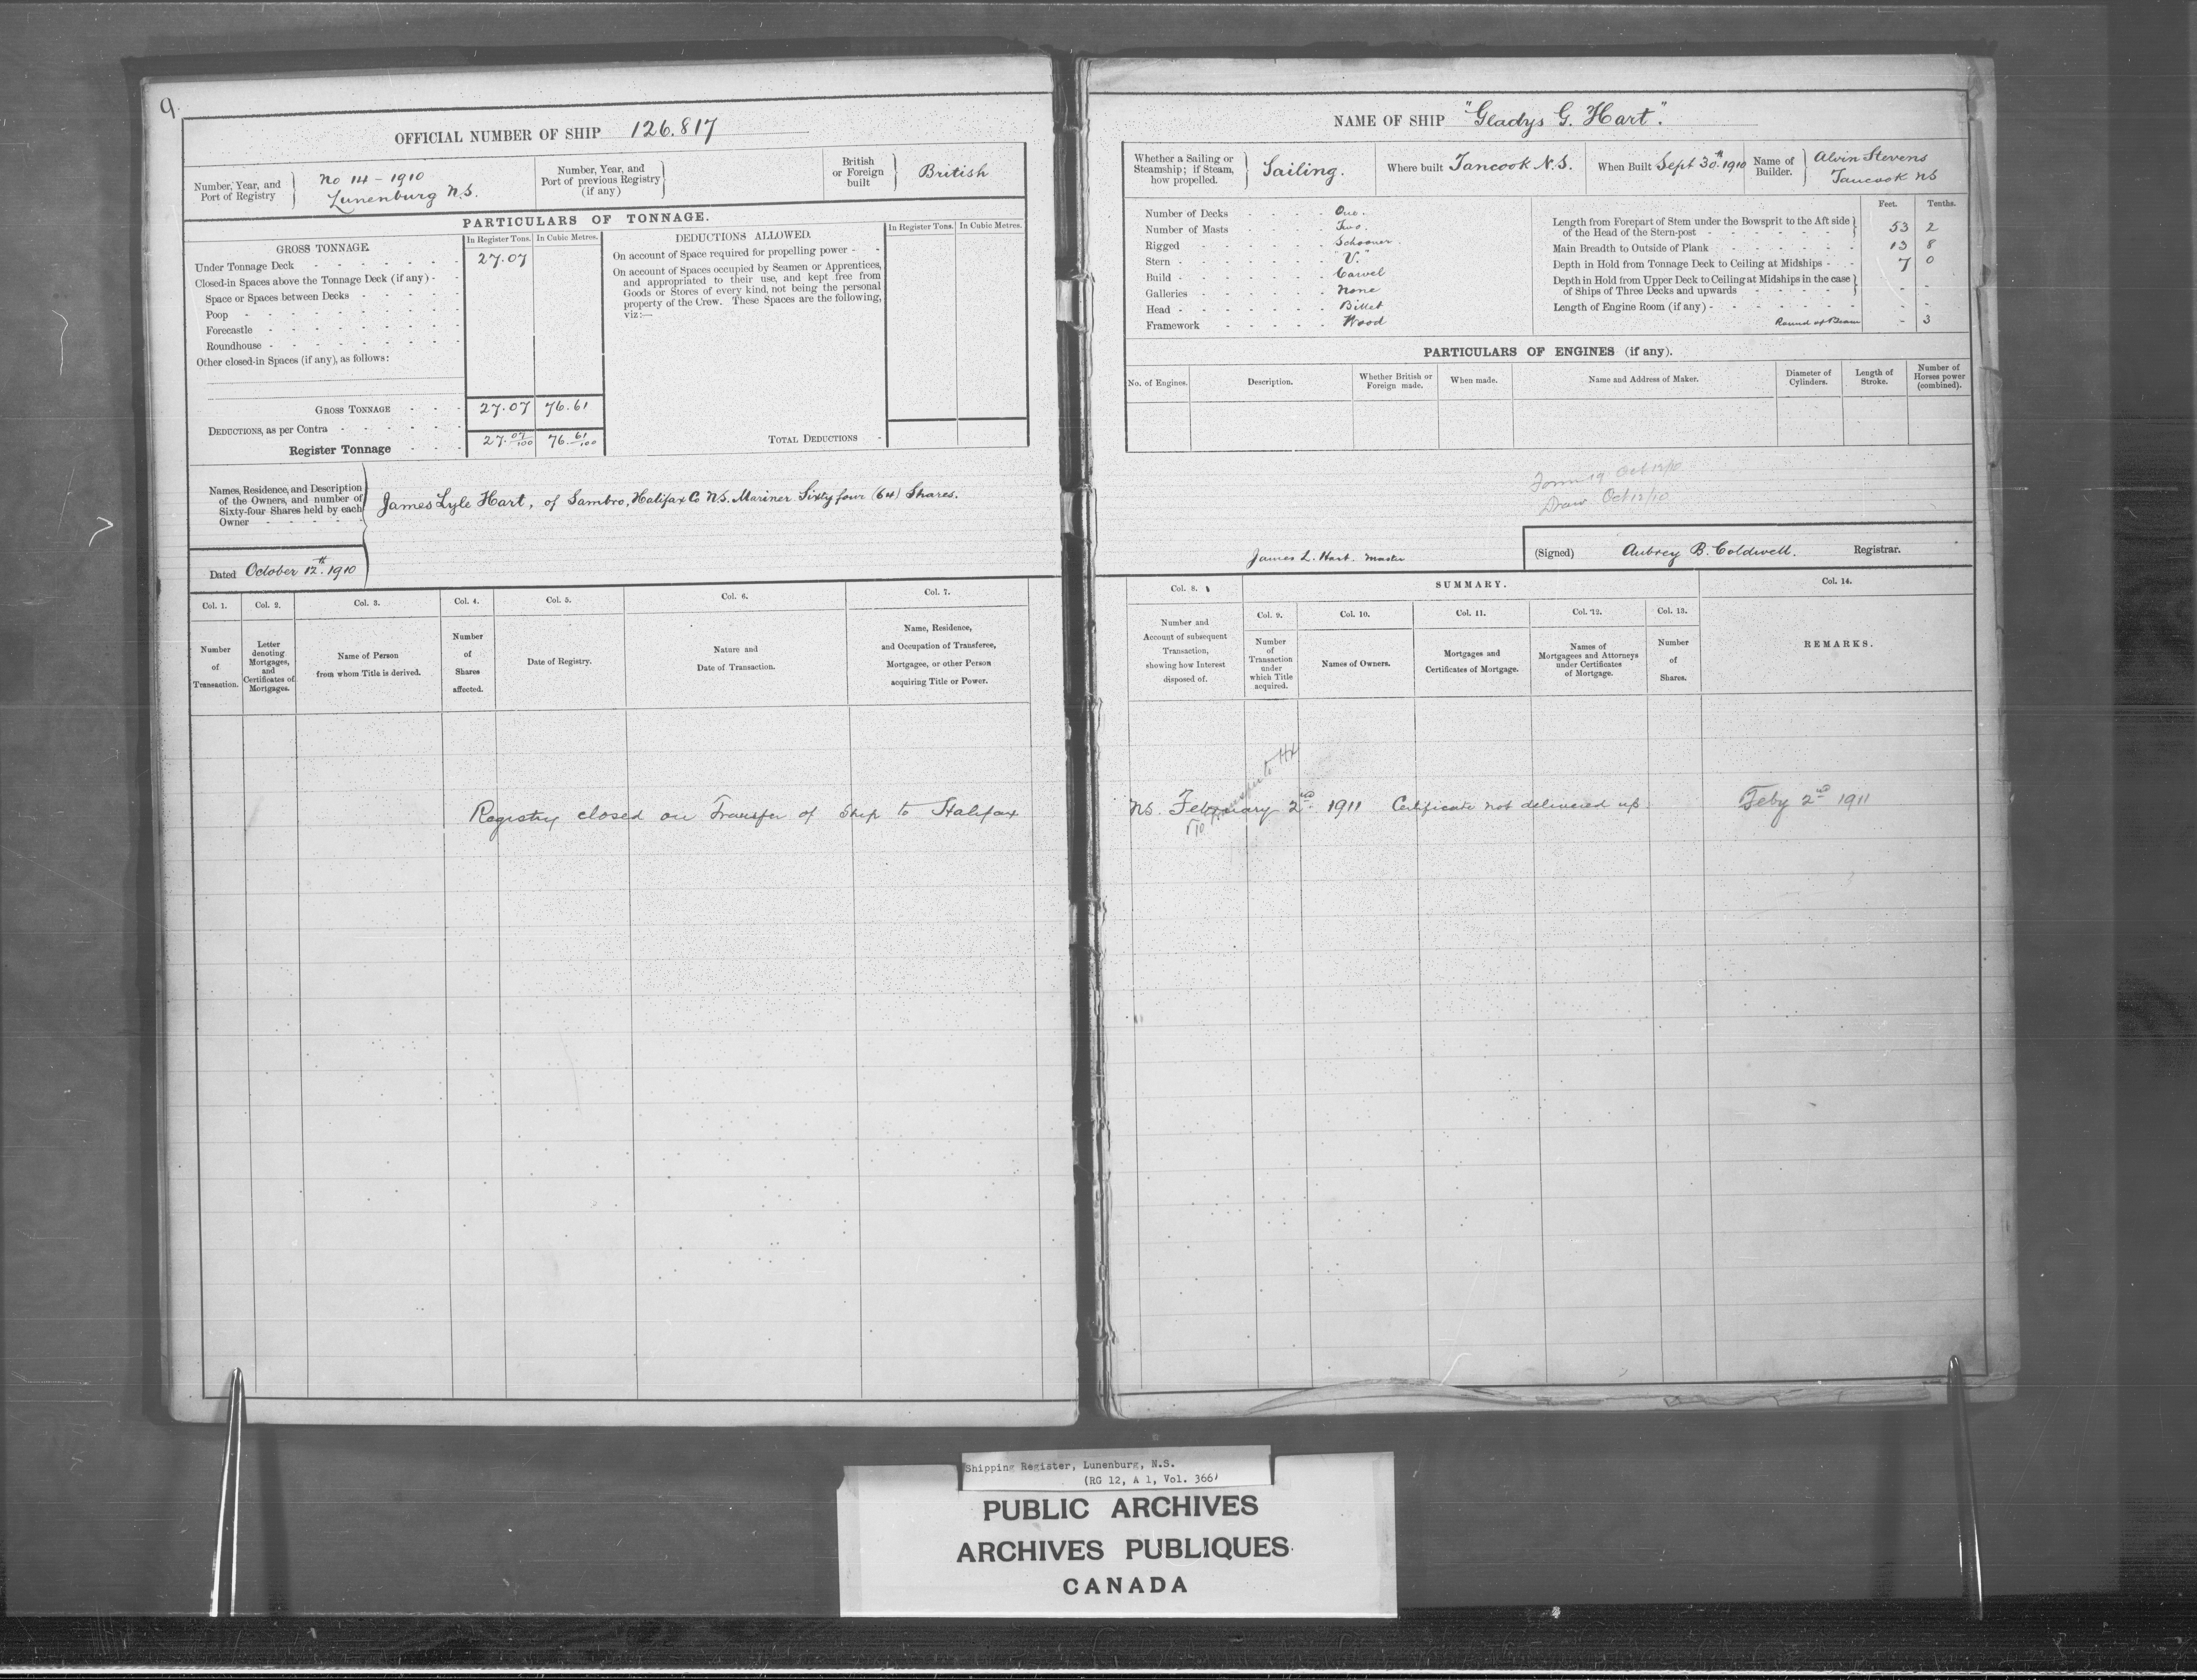 9
OFFICIAL NUMBER OF SHIP 126.817
Number, Year, and
Port of Registry
No 14 - 1910
Lunenburg N.S.
Number, Year, and
Port of previous Registry
(if any)
British
or Foreign
built
British
PARTICULARS OF TONNAGE.
GROSS TONNAGE.
In Register Tons.
In Cubic Metres.
Under Tonnage Deck - - - - - - 27.07
Closed-in Spaces above the Tonnage Deck (if any) - -
Space or Spaces between Decks - - - - -
Poop - - - - - - - -
Forecastle - - - - - - -
Roundhouse - - - - - - -
Other closed-in Spaces (if any), as follows:
GROSS TONNAGE - - - 27.07 76.61
DEDUCTIONS, as per Contra - - - - - -
Register Tonnage - - - 27.07/100 76.61/100
DEDUCTIONS ALLOWED.
In Register Tons.
In Cubic Metres.
On account of Space required for propelling power - -
On account of Spaces occupied by Seamen or Apprentices,
and appropriated to their use, and kept free from
Goods or Stores of every kind, not being the personal
property of the Crew. These Spaces are the following,
viz:—
TOTAL DEDUCTIONS -
Names, Residence, and Description
of the Owners, and number of
Sixty-four Shares held by each
Owner - - - - -
James Lyle Hart, of Sambro, Halifax Co N.S. Mariner Sixty four (64) Shares.
Dated October 12th. 1910
Col. 1.
Number
of
Transaction.
Col. 2.
Letter
denoting
Mortgages,
and
Certificates of
Mortgages.
Col. 3.
Name of Person
from whom Title is derived.
Col. 4.
Number
of
Shares
affected.
Col. 5.
Date of Registry.
Col. 6.
Nature and
Date of Transaction.
Col. 7.
Name, Residence,
and Occupation of Transferee,
Mortgagee, or other Person
acquiring Title or Power.
Registry closed on Transfer of Ship to Halifax
NAME OF SHIP "Gladys G. Hart".
Whether a Sailing or
Steamship; if Steam,
how propelled.
Sailing.
Where built Tancook N.S.
When Built Sept 30th. 1910
Name of
Builder.
Alvin Stevens
Tancook NS
Number of Decks - - - - One.
Number of Masts - - - - Two.
Rigged - - - - - Schooner.
Stern - - - - - - "V."
Build - - - - - - Carvel
Galleries - - - - - None
Head - - - - - - Billet
Framework - - - - - Wood
Feet. Tenths.
Length from Forepart of Stem under the Bowsprit to the Aft side
of the Head of the Stern-post - - - - - - 53 2
Main Breadth to Outside of Plank - - - - - - 13 8
Depth in Hold from Tonnage Deck to Ceiling at Midships - - 7 0
Depth in Hold from Upper Deck to Ceiling at Midships in the case
of Ships of Three Decks and upwards - - - - - - -
Length of Engine Room (if any) - - - - - - - -
Round of Beam - 3
PARTICULARS OF ENGINES (if any).
No. of Engines.
Description.
Whether British or
Foreign made.
When made.
Name and Address of Maker.
Diameter of
Cylinders.
Length of
Stroke.
Number of
Horses power
(combined).
Form 19 Oct 12/10
Draw Oct 12/10
James L. Hart. Master
(Signed) Aubrey B. Coldwell. Registrar.
Col. 8.
Number and
Account of subsequent
Transaction,
showing how Interest
disposed of.
SUMMARY.
Col. 9.
Number
of
Transaction
under
which Title
acquired.
Col. 10.
Names of Owners.
Col. 11.
Mortgages and
Certificates of Mortgage.
Col. 12.
Names of
Mortgagees and Attorneys
under Certificates
of Mortgage.
Col. 13.
Number
of
Shares.
Col. 14.
REMARKS.
NS. February 2nd. 1911 Certificate not delivered up.
Feby 2nd 1911
Shipping Register, Lunenburg, N.S.
(RG 12, A 1, Vol. 366)
PUBLIC ARCHIVES
ARCHIVES PUBLIQUES
CANADA